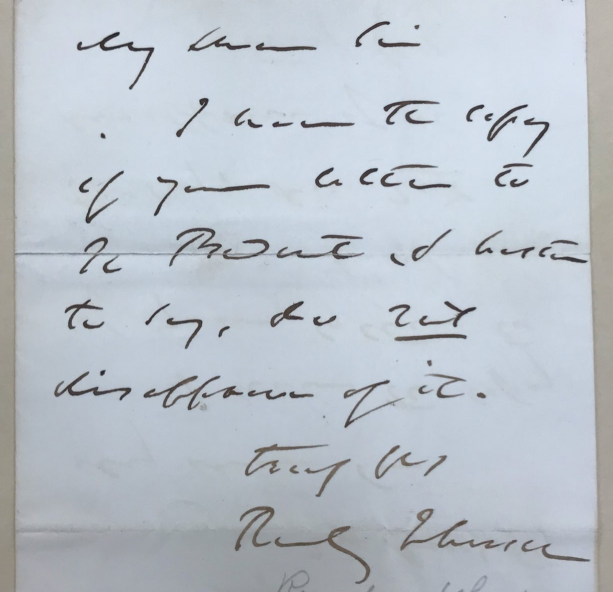 My dear Sir
I have the copy
of your letter to
the President & hasten
to say, do not
disapprove of it.
truly yrs